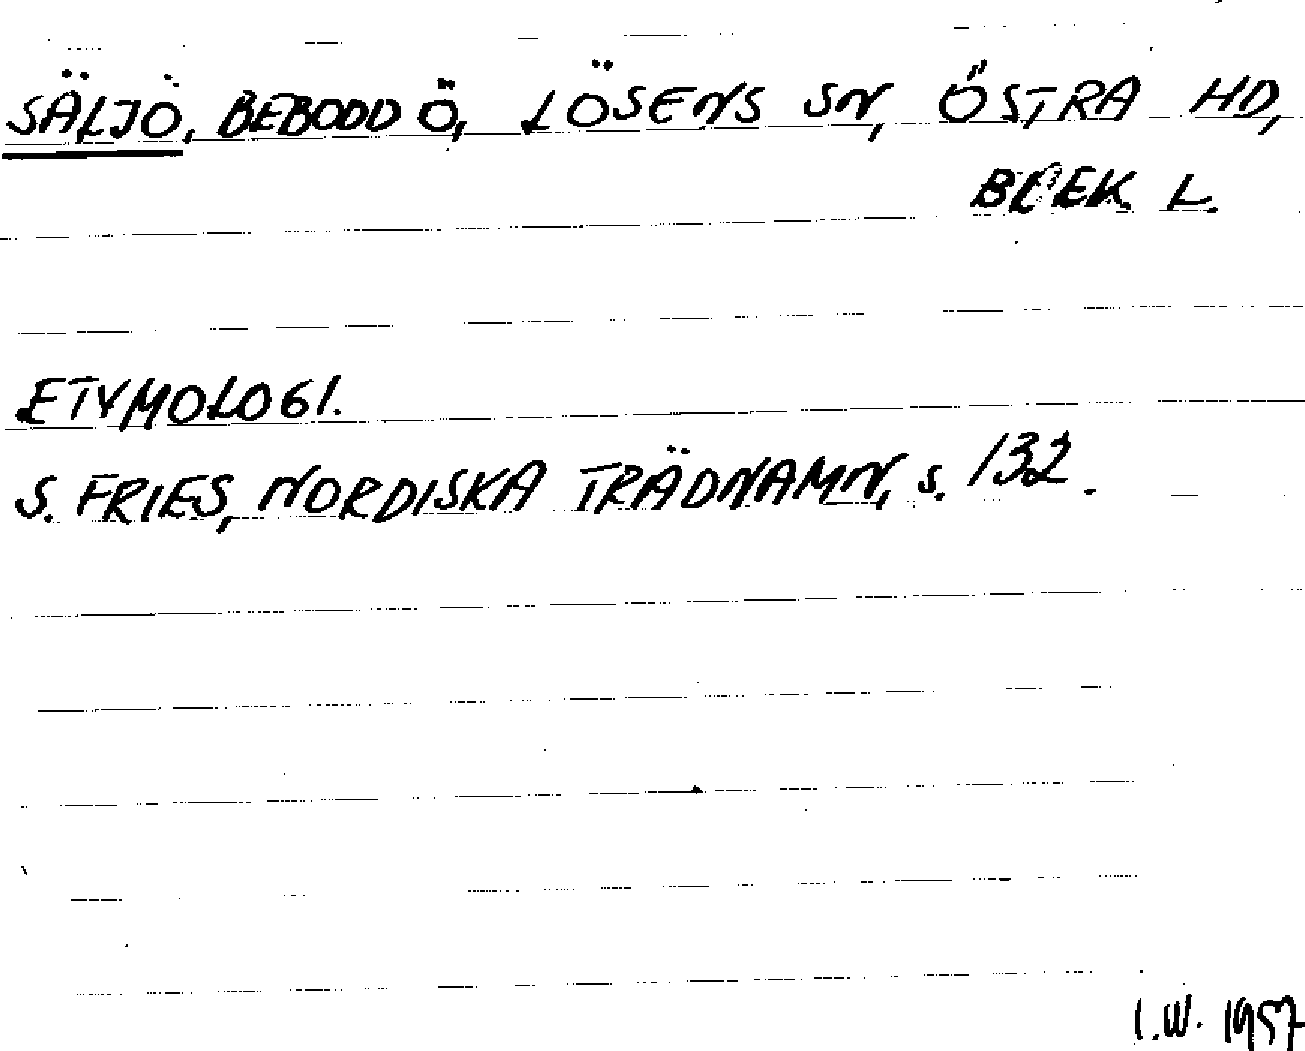 SÄLJÖ, BEBODD Ö, LÖSENS SN, ÖSTRA HD,
BLEK. L.
ETYMOLOGI.
S. FRIES, NORDISKA TRÄDNAMN, S. 132.
I.W. 1957